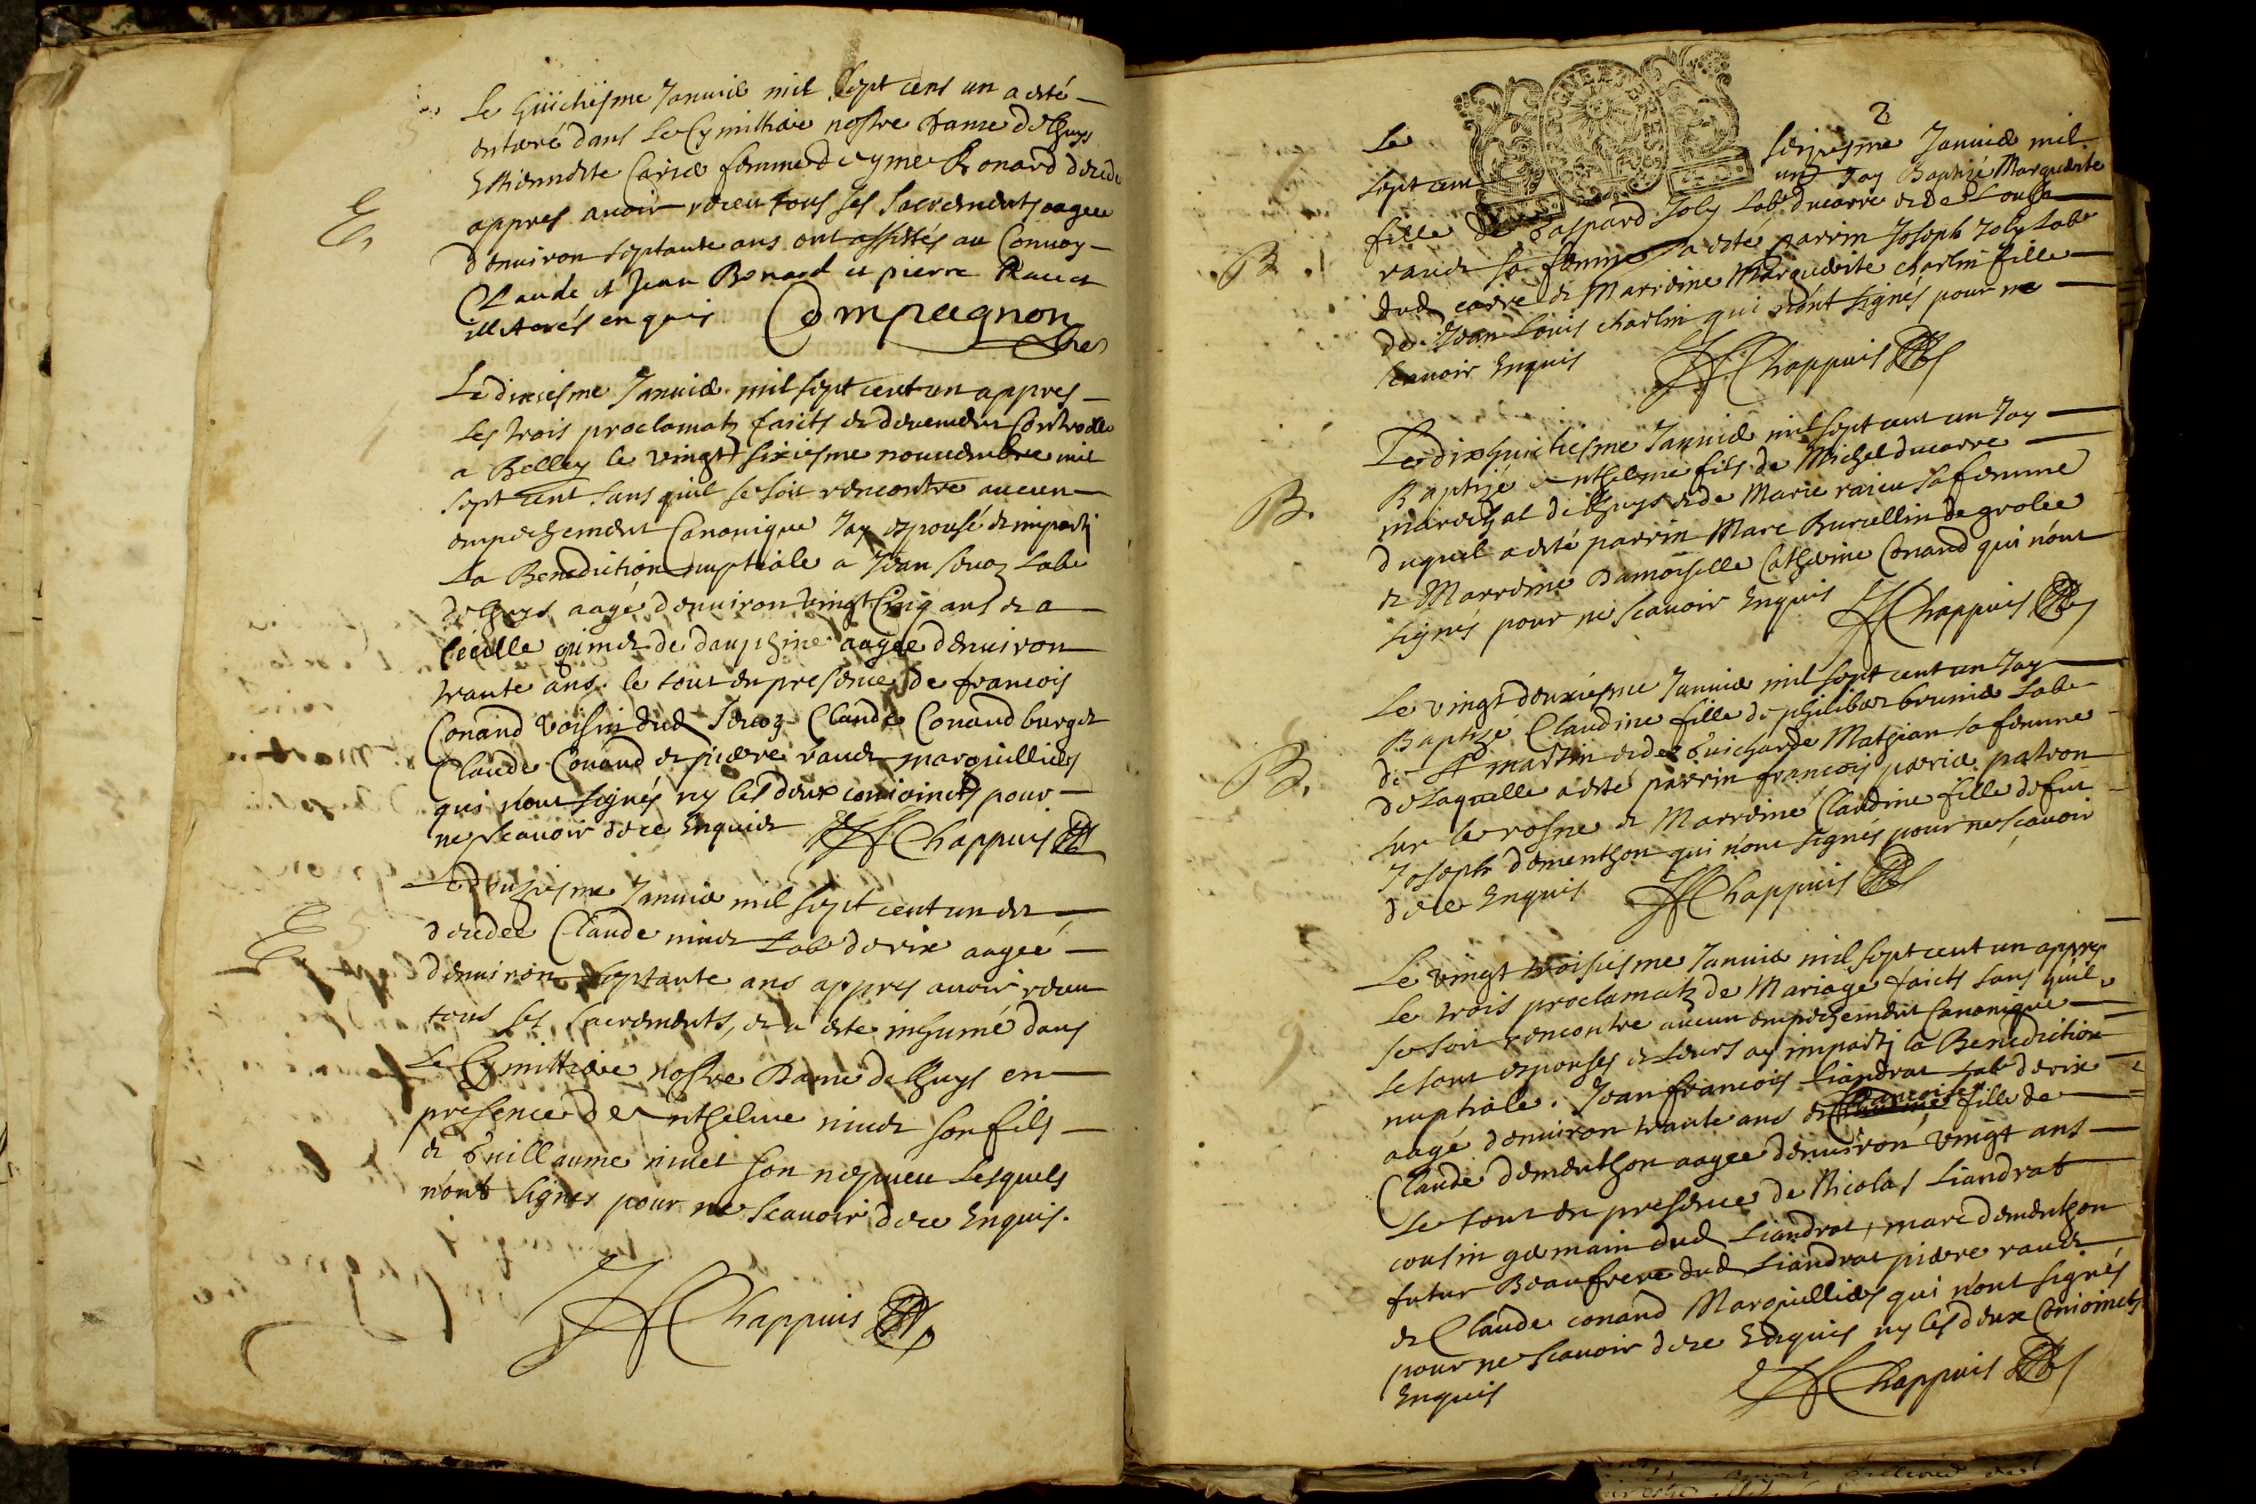 Le huictiesme Januier mil sept cens un a esté
enterré dans le Cymittiere nostre dame de lhuys
Estiennette Carrier femme de ayme Bonard decedé
appres auoir receu tous ses sacrements aagee
d'enuiron septante ans ont assistés au Conuoy
Claude et Jean Bonard et pierre Rauet
illiterés enquis Compagnon
E.
Le dixiesme Januier mil sept cent un appres
les trois proclamatz faicts et deuement Controllé
a Belley le vingt sixiesme nouuembre mil
sept cent sans quil se soit rencontre aucun
empechement Canonique Jay espousé et imparti
la Benediction nuptiale a Jean Lab
de lhuys aagé denuiron vingt Cinq ans et a
Cecille de dauphine aagee denuiron
trante ans. le tout en presence de francois
Conand voisin dud Claude Conand burget
Claude Conand et pierre rauet marguilliers
qui n'ont signés ny les deux conioincts pour
ne scauoir de ce Enquis Chappuis
E
Le douziesme Januier mil sept cent un est
decedee Claude niuet Lab derix aagee
denuiron septante ans appres auoir receu
tous ses sacrements, et a este inhumé dans
Le Cymittiere nostre Dame de lhuys en
presence de Anthelme niuet son fils
et Guillaume niuet son nepueu Lesquels
n'ont signes pour ne scauoir de ce Enquis.
Chappuis
2
Le seiziesme Januier mil
sept cent un Jay Baptizé Marguerite
fille de Gaspard Joly Lab ducarre et de Louise
rauet sa femme a esté parrin Joseph Joly Lab
dud carre et Marreine Marguerite charlin fille
de Jean Louis charlin qui n'ont signés pour ne
scauoir Enquis Chappuis
B.
Le dixhuictiesme Januier mil sept cent un Jay
Baptizé Anthelme fils de Michel ducarre
marechal de lhuys et de Marie raieu sa femme
duquel a esté parrin Marc Burcellin de grolee
et Marreine Damoiselle Catherine Conand qui n'ont
signés pour ne scauoir Enquis Chappuis
B.
Le vingt deuxiesme Januier mil sept cent un Jay
Baptizé Claudine fille de philibert brunier Lab
de St martin et de Guicharde Mathian sa femme
de Laquelle a esté parrin francois perrier patron
sur le rosne et Marreine Claudine fille de fut
Joseph dementhon qui n'ont signés pour ne scauoir
de ce Enquis Chappuis
B.
Le vingt troisiesme Januier mil sept cent un appres
Le trois proclamatz de Mariage faicts sans quil
se soit rencontre aucun empechement Canonique
se sont espousés et Leurs ay imparti la Benediction
nuptiale. Jean francois Liandrat Lab derix
aagé denuiron trante ans et francoise fille de
Claude dementhon aagee denuiron vingt ans
Le tout en presence de Nicolas Liandrat
cousin germain dud Liandrat, marc dementhon
futur Beaufrere dud Liandrat pierre rauet
et Claude conand Marguilliers qui n'ont signés
pour ne scauoir de ce Enquis ny les deux Conioincts
Enquis Chappuis